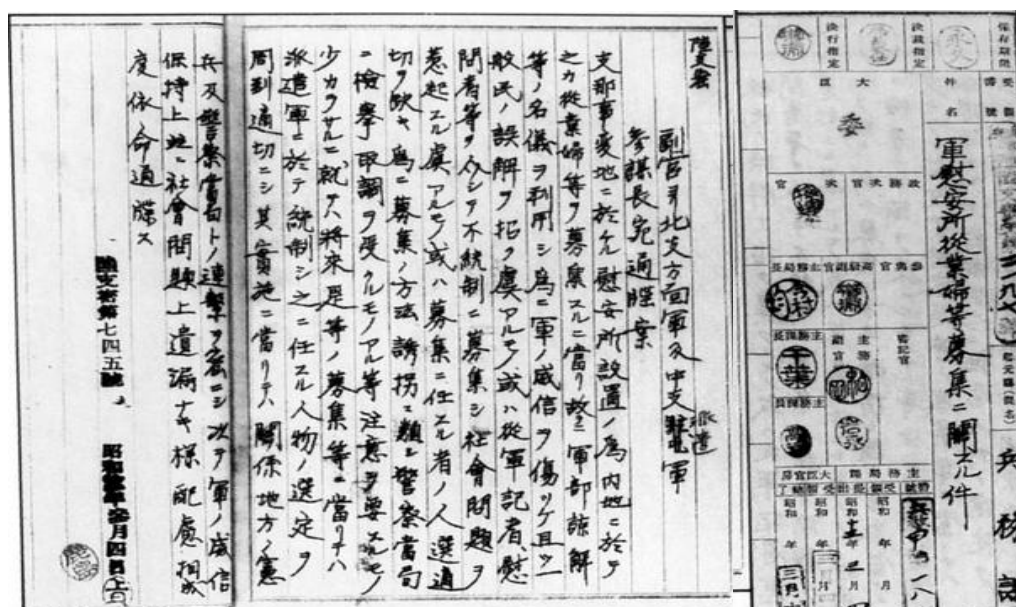 保存期限
永久
決裁指定
決行指定
件名
軍慰安所從業婦等募集ニ關スル件
大臣
委
政務次官
次官
參與官
高級副官
主務局長
主務副官
主務課長
千葉
秘書官
主務課員
大臣官房
主務局課
昭和 年 月
昭和十三年三月
昭和 年 月
陸支密
副官ヨリ北支方面軍及中支派遣軍
參謀長宛通牒案
支那事變地ニ於ケル慰安所設置ノ為内地ニ於テ
之カ從業婦等ヲ募集スルニ當リ故ラニ軍部諒解
等ノ名儀ヲ利用シ為ニ軍ノ威信ヲ傷ツケ且ツ一
般民ノ誤解ヲ招ク虞アルモノ或ハ從軍記者、慰
問者等ヲ介シテ不統制ニ募集シ社會問題ヲ
惹起スル虞アルモノ或ハ募集ニ任スル者ノ人選適
切ヲ缺キ為ニ募集ノ方法誘拐ニ類シ警察當局
ニ檢擧取調ヲ受クルモノアル等注意ヲ要スルモノ
少カラサルニ就テハ將來是等ノ募集等ニ當リテハ
派遣軍ニ於テ統制シ之ニ任スル人物ノ選定ヲ
周到適切ニシ其實施ニ當リテハ關係地方ノ憲
兵及警察當局トノ連繫ヲ密ニシ以テ軍ノ威信
保持上並ニ社會問題上遺漏ナキ様配慮相成
度依命通牒ス
陸支密第七四五號 昭和拾參年參月四日